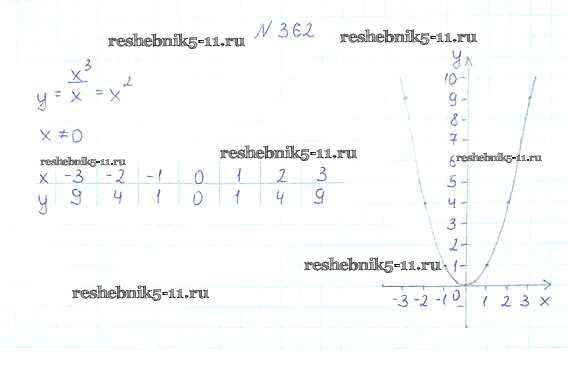 N 362
reshebnik5-11.ru
reshebnik5-11.ru
y = x³/x = x²
x ≠ 0
reshebnik5-11.ru
reshebnik5-11.ru
x -3 -2 -1 0 1 2 3
y 9 4 1 0 1 4 9
reshebnik5-11.ru
reshebnik5-11.ru
reshebnik5-11.ru
y
10
9
8
7
6
5
4
3
2
1
-3 -2 -1 0 1 2 3 x